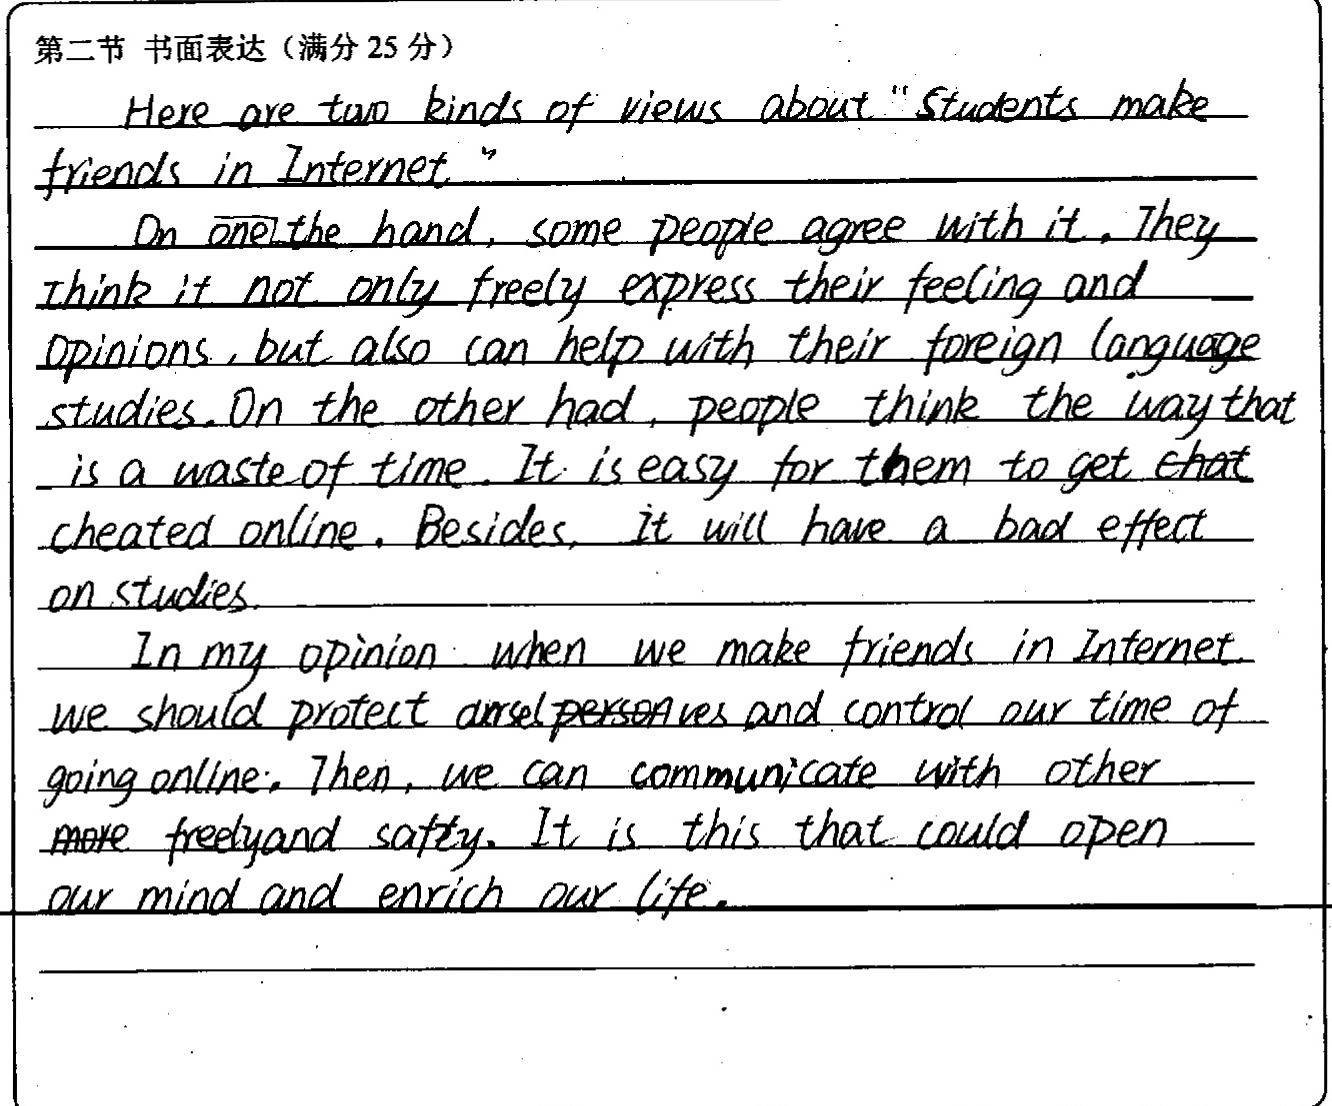 第二节 书面表达（满分 25 分）
Here are two kinds of views about "Students make
friends in Internet"
On one the hand, some people agree with it. They
think it not only freely express their feeling and
opinions, but also can help with their foreign language
studies. On the other had, people think the way that
is a waste of time. It is easy for them to get chat
cheated online. Besides, it will have a bad effect
on studies.
In my opinion when we make friends in Internet.
we should protect person ves and control our time of
going online. Then, we can communicate with other
more freely and safty. It is this that could open
our mind and enrich our life.